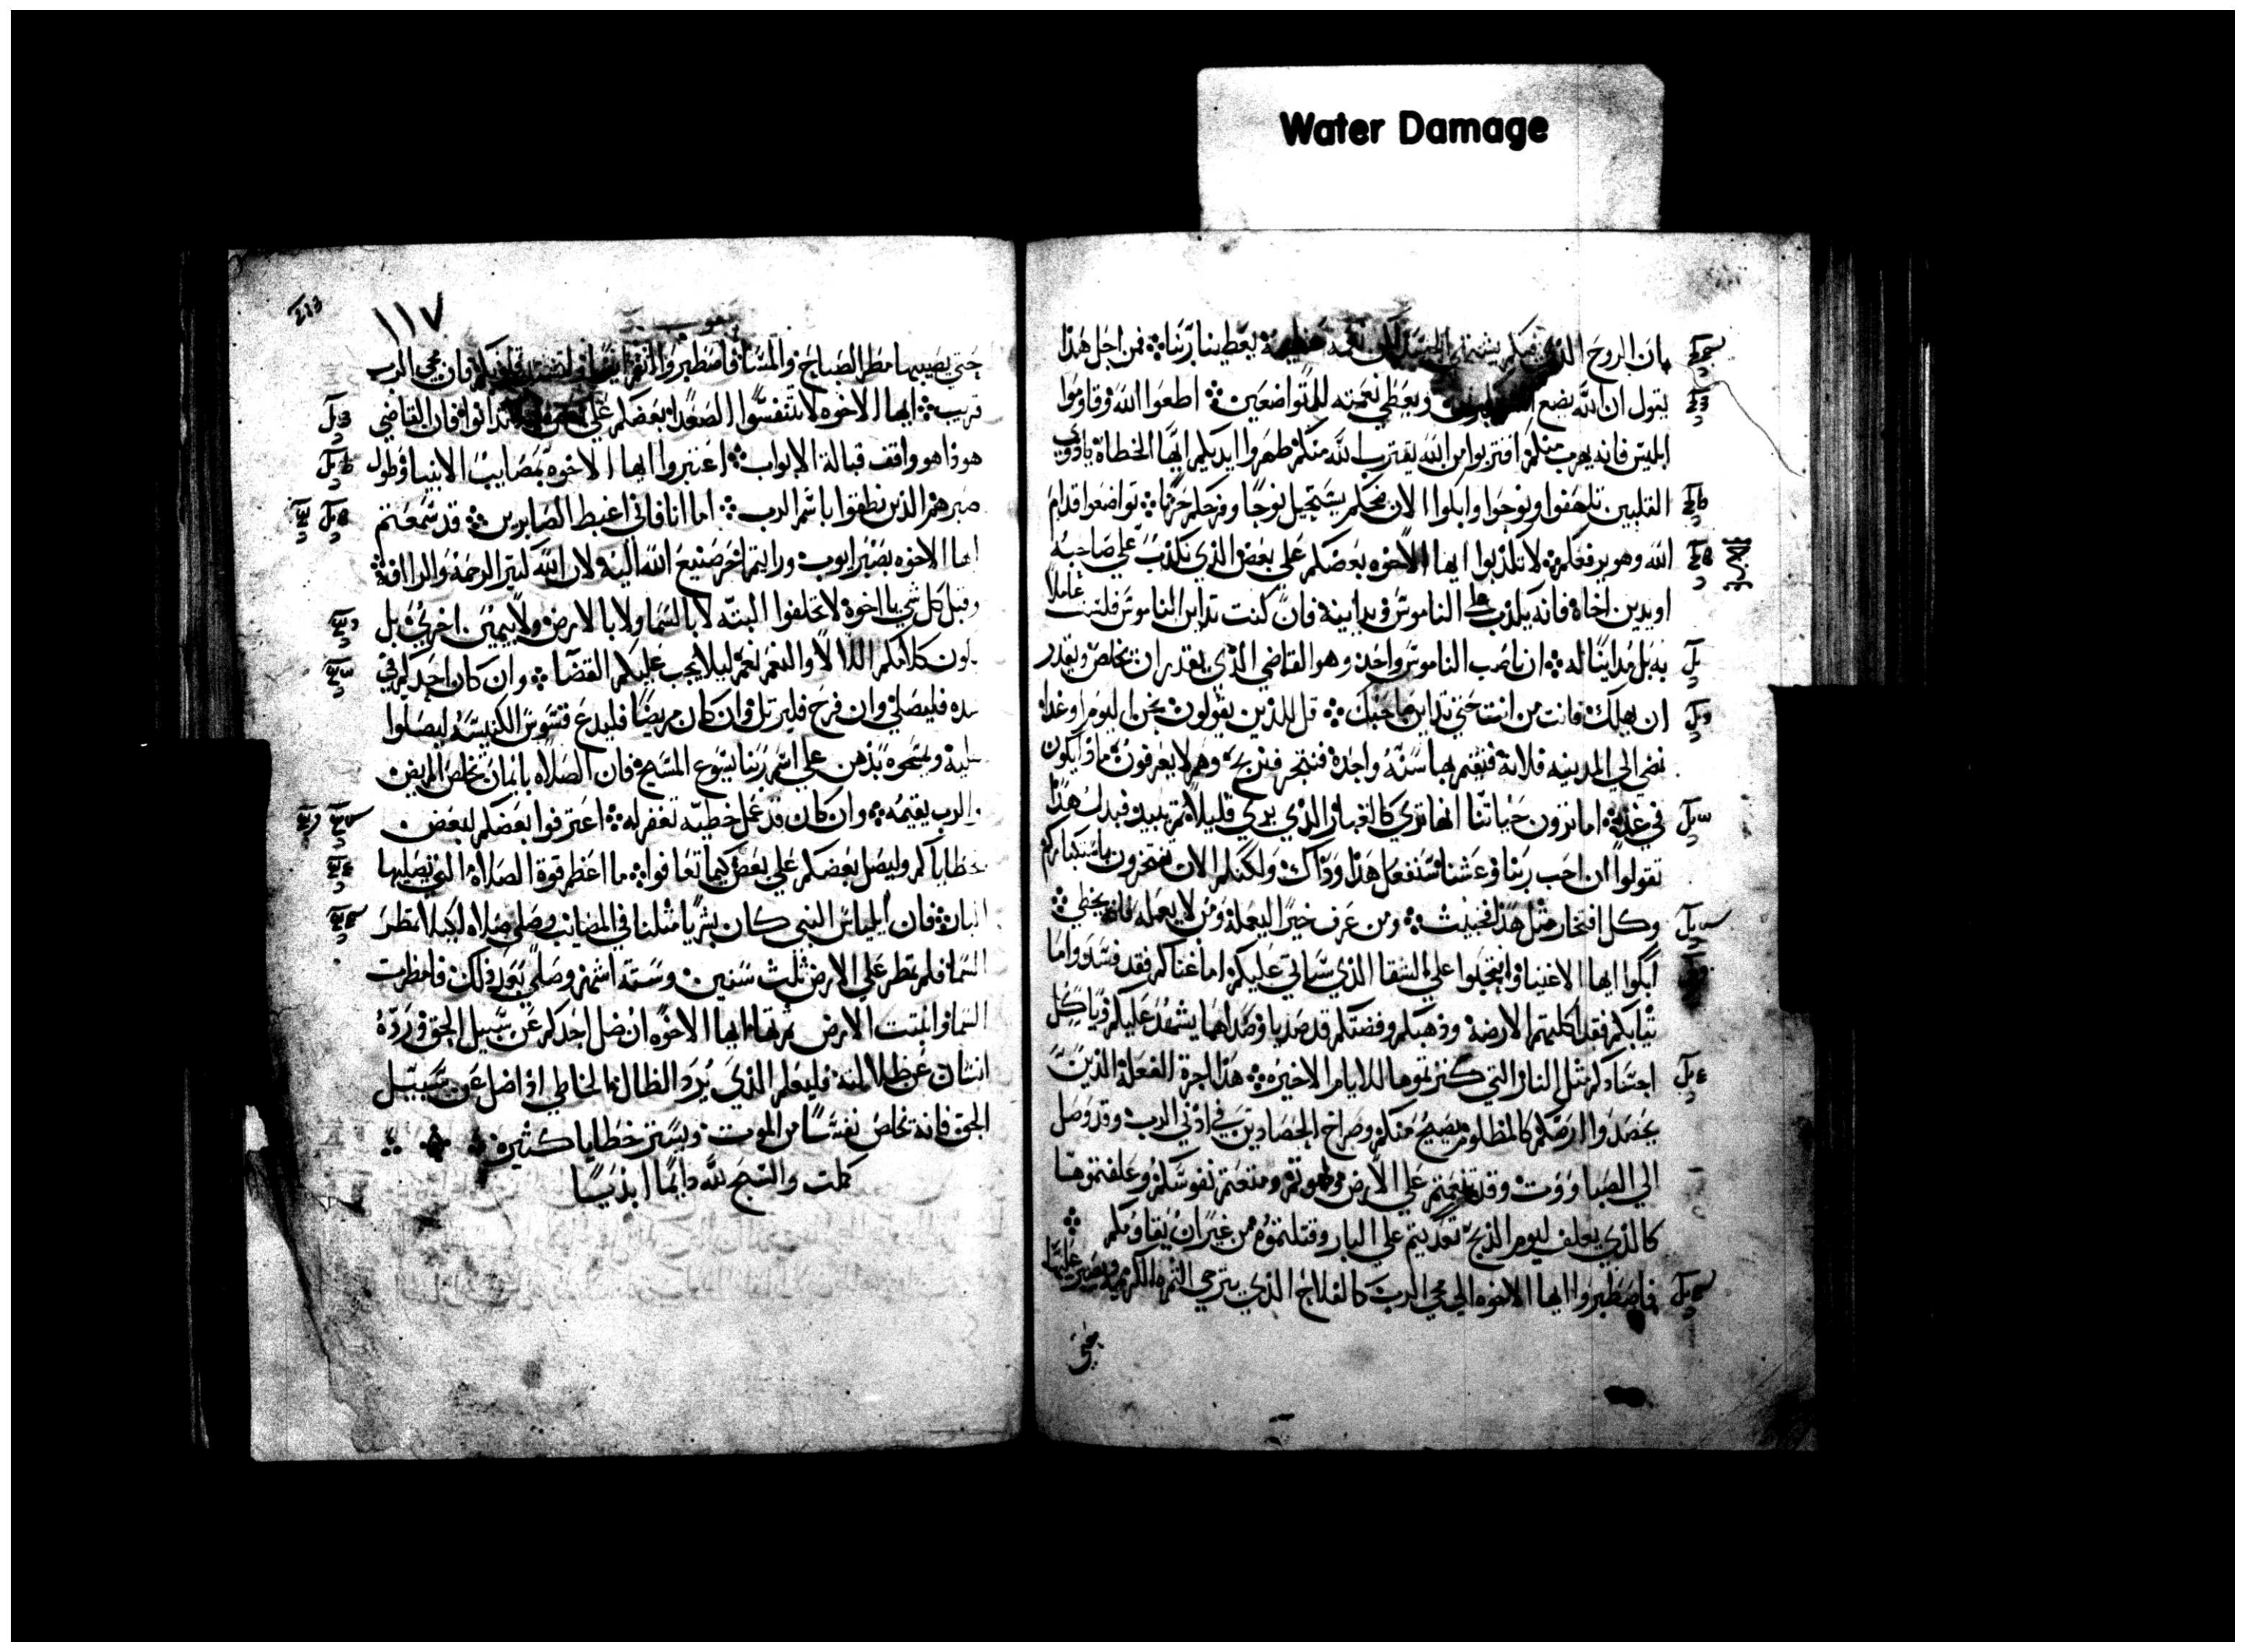 Water Damage
بان الروح الذي فيكم يشتهي الحسد لكن نعمة عظيمة يعطينا ربنا فمن اجل هذا
يقول ان الله يضع ويعطي نعمته للمتواضعين اطعوا الله وقاوموا
ابليس فانه يهرب منكم اقتربوا من الله يقترب الله منكم طهروا ايديكم ايها الخطاة ياذوي
القلبين تلهفوا ونوحوا وابكوا الان ضحككم يستحيل نوحا وفرحكم حزنا تواضعوا قدام
الله وهو يرفعكم لا تكذبوا ايها الاخوه بعضكم علي بعض الذي يكذب علي صاحبه
او يدين اخاه فانه يكذب علي الناموس ويداينه فان كنت تداين الناموس فلست عاملا
به بل مداينا له ان ناصب الناموس واحد وهو القاضي الذي يقدر ان يخلص ويقدر
ان يهلك فانت من انت حتي تداين صاحبك قل للذين يقولون نحن اليوم او غدا
نمضي الي المدينه فلانة فنقيم بها سنه واحدة فنتجر فنربح وهم لا يعرفون ماذا يكون
في غد اما ترون حياتنا انها تري كالغبار الذي يري قليلا ثم يبيد فبدل هذا
تقولوا ان احب ربنا وعشنا سنفعل هذا وذاك ولكنكم الان تفتخرون باستكباركم
وكل افتخار مثل هذا فخبيث ومن عرف خيرا ليعمله ومن لا يعمله فانه يخطي
ابكوا ايها الاغنيا وانتحبوا علي الشقا الذي سياتي عليكم اما غناكم فقد فسد واما
ثيابكم فقد اكلتهم الارضة وذهبكم وفضتكم قد صديا وصداهما يشهد عليكم وياكل
اجسادكم مثل النار التي كنزتموها للايام الاخيره هذا اجرة الفعلة الذين
يحصدوا ارضكم كالمظلوم يصيح منكم وصراخ الحصادين في اذني الرب وقد وصل
الي الصباووت وقد تنعمتم علي الارض ولهوتم ومتعتم نفوسكم وعلفتموها
كالذي يعلف ليوم الذبح تعديتم علي البار وقتلتموه من غير ان يقاومكم
فاصطبروا ايها الاخوه الي مجي الرب كالفلاح الذي يترجي الثمره الكريمه ويصبر عليها
حتي
١١٧
يعقوب
حتي يصيبها مطر الصباح والمسا فاصطبروا انتم ايضا فان مجي الرب
قريب ايها الاخوه لا تتنفسوا الصعدا بعضكم علي تدانوا فان القاضي
هوذا هو واقف قبالة الابواب اعتبروا ايها الاخوه بمصايب الانبيا وطول
صبرهم الذين نطقوا باسم الرب اما انا فاني اغبط الصابرين قد سمعتم
ايها الاخوه بصبر ايوب ورايتم اخر صنيع الله اليه لان الله كثير الرحمة والرافة
وقبل كل شي يا اخوة لا تحلفوا البته لا بالسما ولا بالارض ولا بيمين اخري بل
يكون كلامكم اللا لا والنعم نعم ليلا يجب عليكم القضا وان كان احدكم في
شده فليصلي وان فرح فليرتل وان كان مريضا فليدع قسوس الكنيسه ليصلوا
عليه ويمسحوه بذهن علي اسم ربنا يسوع المسيح فان الصلاه بايمان تخلص المريض
والرب يقيمه وان كان قد عمل خطيه تغفر له اعترفوا بعضكم لبعض
بخطاياكم وليصل بعضكم علي بعض كيما تعافوا ما اعظم قوة الصلاة التي يصليها
البار فان ايلياس النبي كان بشريا مثلنا في المصايب صلاه لكيلا تمطر
السما فلم تمطر علي الارض ثلث سنين وسته اشهر وصلي بعد ذلك فامطرت
السما وانبتت الارض ثمرتها ايها الاخوه ان ضل احدكم عن سبيل الحق ورده
انسان عن ظلالته فليعلم الذي يرد الظال الخاطي اذا ضل عن سبيل
الحق فانه يخلص نفسا من الموت ويستر خطايا كثيره
كملت والسبح لله دايما ابديسا